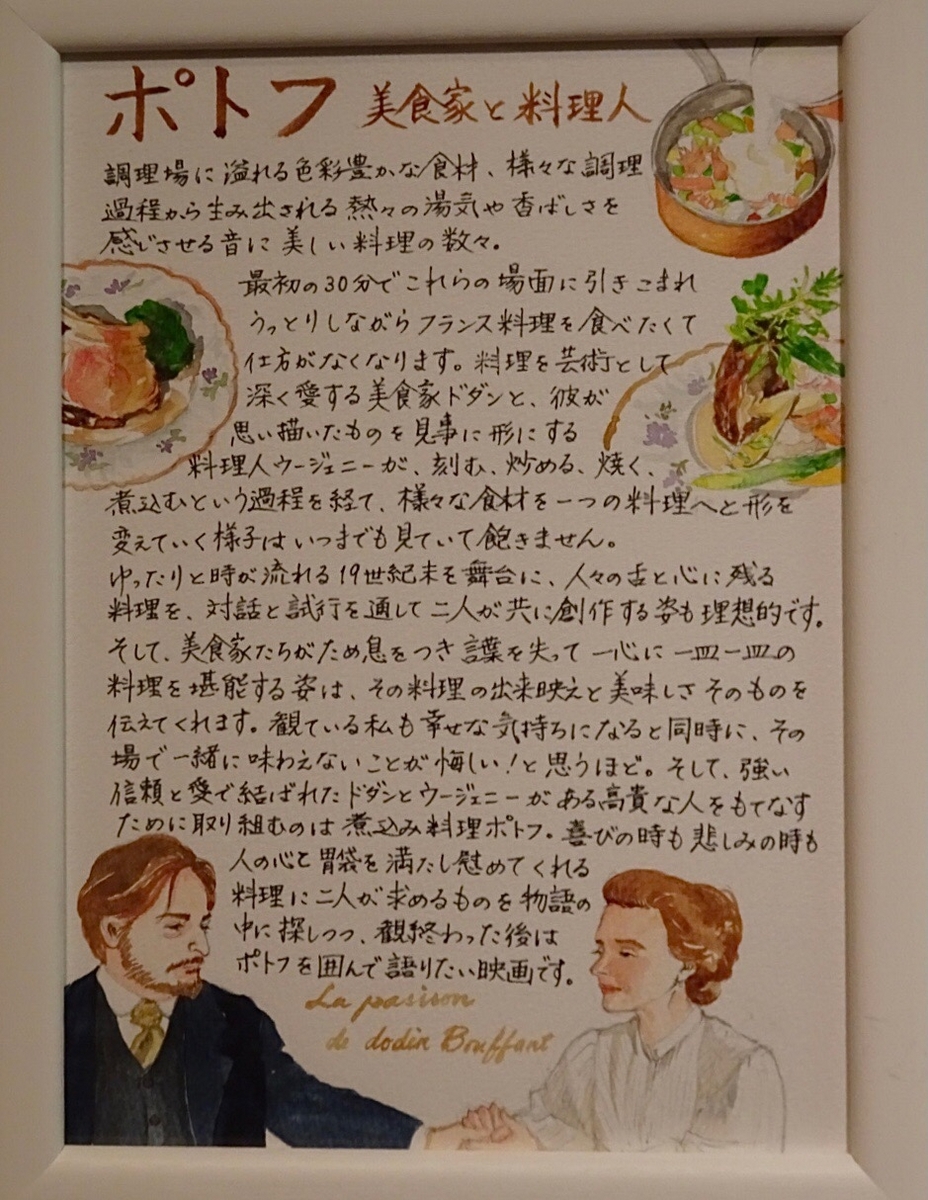 ポトフ 美食家と料理人
調理場に溢れる色彩豊かな食材、様々な調理
過程から生み出される熱々の湯気や香ばしさを
感じさせる音に美しい料理の数々。
最初の30分でこれらの場面に引きこまれ
うっとりしながらフランス料理を食べたくて
仕方がなくなります。料理を芸術として
深く愛する美食家ドダンと、彼が
思い描いたものを見事に形にする
料理人ウージェニーが、刻む、炒める、焼く、
煮込むという過程を経て、様々な食材を一つの料理へと形を
変えていく様子はいつまでも見ていて飽きません。
ゆったりと時が流れる19世紀末を舞台に、人々の舌と心に残る
料理を、対話と試行を通して二人が共に創作する姿も理想的です。
そして、美食家たちがため息をつき言葉を失って一心に一皿一皿の
料理を堪能する姿は、その料理の出来映えと美味しさそのものを
伝えてくれます。観ている私も幸せな気持ちになると同時に、その
場で一緒に味わえないことが悔しい!と思うほど。そして、強い
信頼と愛で結ばれたドダンとウージェニーがある高貴な人をもてなす
ために取り組むのは煮込み料理ポトフ。喜びの時も悲しみの時も
人の心と胃袋を満たし慰めてくれる
料理に二人が求めるものを物語の
中に探しつつ、観終わった後は
ポトフを囲んで語りたい映画です。
La pasion
de dodin Bouffant